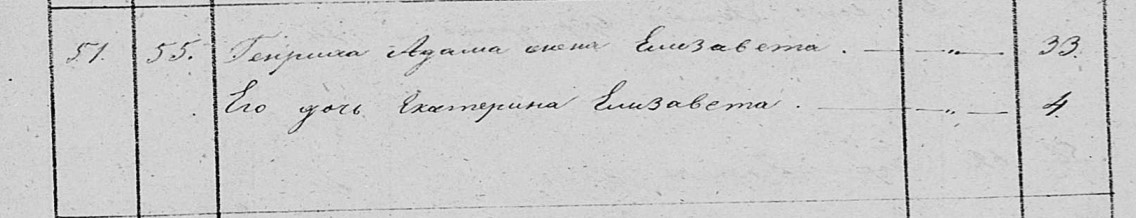 51. 55. Генриха Адама жена Елизавета . — „ — 33.
Его дочь Екатерина Елизавета . — „ — 4.